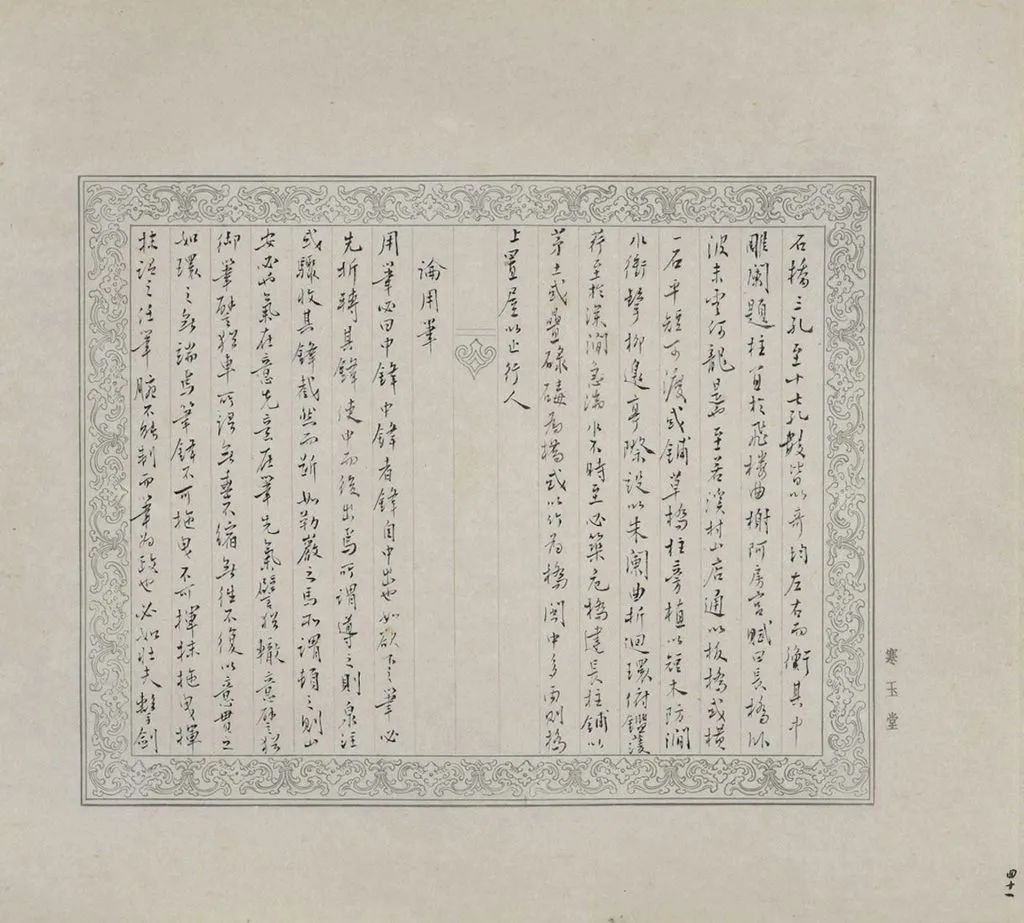 石橋三孔至十七孔數皆以奇均左右而衡其中
雕闌題柱亘於飛樓曲榭阿房宮賦曰長橋臥
波未雲何龍是也至若溪村山店通以板橋或橫
一石平短可渡或鋪草橋柱旁植以短木防澗
水衝擊柳邊亭際設以朱闌曲折迴環俯鑑菱
荇至於深澗急湍水不時至必築危橋建長柱鋪以
茅土或疊磚為橋或以竹為橋閩中多雨則橋
上置屋以止行人
論用筆
用筆必曰中鋒中鋒者鋒自中出也如欲下筆必
先折轉其鋒使中而後出焉所謂導之則泉注
或驟收其鋒截然而斷如勒嚴之馬所謂頓之則山
安必也氣在意先意在筆先氣譬猶轍意譬猶
御筆譬猶車所謂無垂不縮無往不復以意貫之
如環之無端焉筆鋒不可拖曳不可揮抹拖曳揮
抹謂之任筆腕不能制而筆為政也必如壯夫擊劍
寒玉堂
四十一